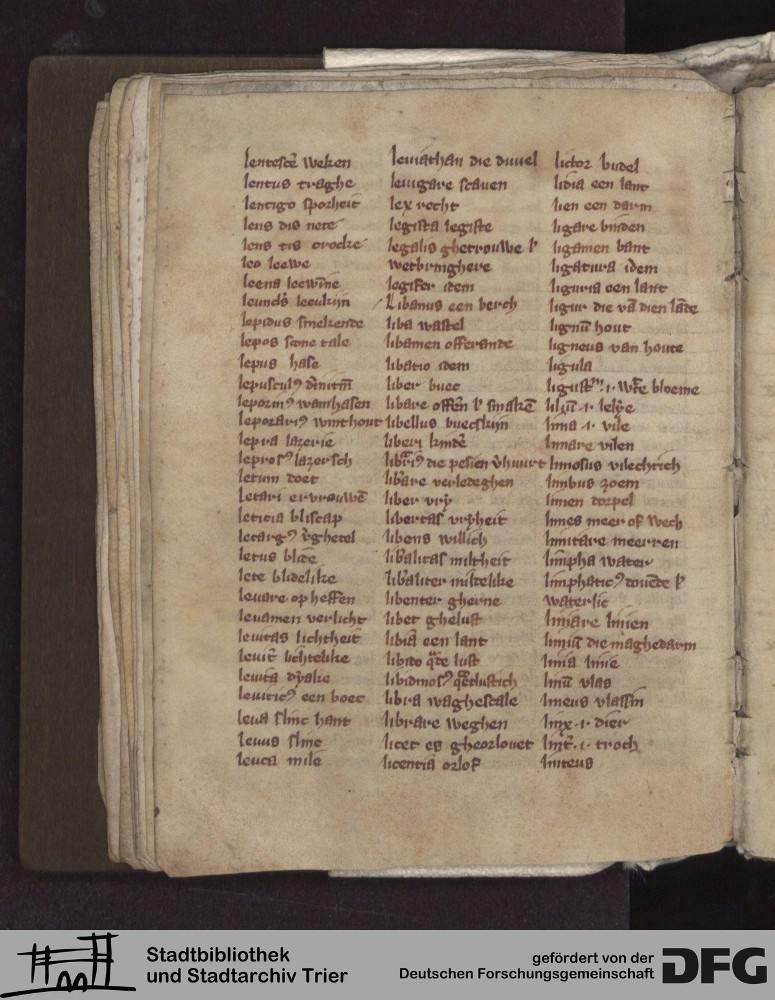 lentesce᷒ weken
lentus traghe
lentigo sporheit
lens dis nete
lens tis crocke
leo leewe
leena leewīne
leuncl᷒s leeukijn
lepidus smekende
lepos scone tale
lepus hase
lepusculꝰ
leporinꝰ vanhasen
leporariꝰ winthout
lepra lazerie
leprosꝰ lazersch
letum doet
letari ervrouwē
leticia bliscap
letargꝰ v᷒ghetel
letus blide
lete blidelike
leuare op heffen
leuamen verlicht
leuitas lichtheit
leuit᷒ lichtelike
leuita dyake
leuiticꝰ een boec
leua slinc hant
leuus slinc
leuca mile
leuiathan die duuel
leuigare scauen
lex recht
legista legiste
legalis ghetrouwe ł
wetbringhere
legifer idem
Libanus een berch
liba wastel
libamen offerande
libatio idem
liber buec
libare offerē ł smakē
libellus buecskijn
liberi kindē
verledeghen
liber vry
libertas vryheit
libens willich
lib᷒alitas miltheit
lib᷒aliter mildelike
libenter gherne
libet ghelust
libia een lant
libido lust
libidinosꝰ
libra waghescale
librare weghen
licet es gheorlouet
licentia orlof
lictor budel
lidia een lant
lien een darm
ligare binden
ligamen bant
ligatura idem
liguria een lant
ligur die vā dien lāde
lignū hout
ligneus van houte
ligula
bloeme
liliū ·i· lelye
lima ·i· vile
limare vilen
limosus
limbus zoem
limen dorpel
limes meer of wech
limitare meerren
limpha water
limphaticꝰ douēde ł
waterlic
liniare linien
die maghedarm
linia linie
linū vlas
lineus vlassin
linx ·i· dier
lint᷒ ·i· troch
linteus
Stadtbibliothek
und Stadtarchiv Trier
gefördert von der
Deutschen Forschungsgemeinschaft
DFG